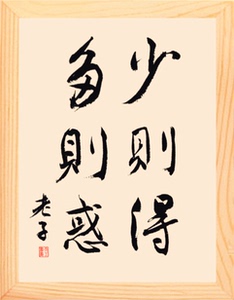 少則得
多則惑
老子